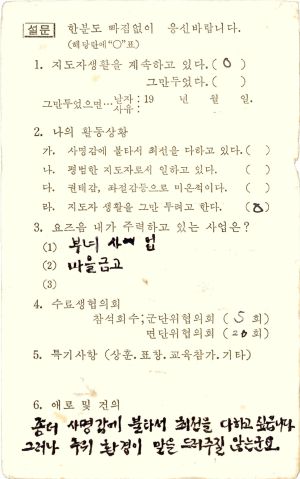 설문 한분도 빠짐없이 응신바랍니다.
(해당란에"○"표)
1. 지도자생활을 계속하고 있다. ( O )
그만두었다. ( )
그만두었으면… 날자 : 19 년 월 일.
사유 :
2. 나의 활동상황
가. 사명감에 불타서 최선을 다하고 있다. ( )
나. 평범한 지도자로서 일하고 있다. ( )
다. 권태감, 좌절감등으로 미온적이다. ( )
라. 지도자 생활을 그만 두려고 한다. ( )
3. 요즈음 내가 주력하고 있는 사업은?
(1) 부녀 사업
(2) 마을금고
(3)
4. 수료생협의회
참석회수 ; 군단위협의회 ( 5 회)
면단위협의회 ( 20 회)
5. 특기사항 (상훈. 표창. 교육참가. 기타)
6. 애로 및 건의
좀더 사명감에 불타서 최선을 다하고 싶습니다
그러나 주위 환경이 말을 드려주질 않는군요